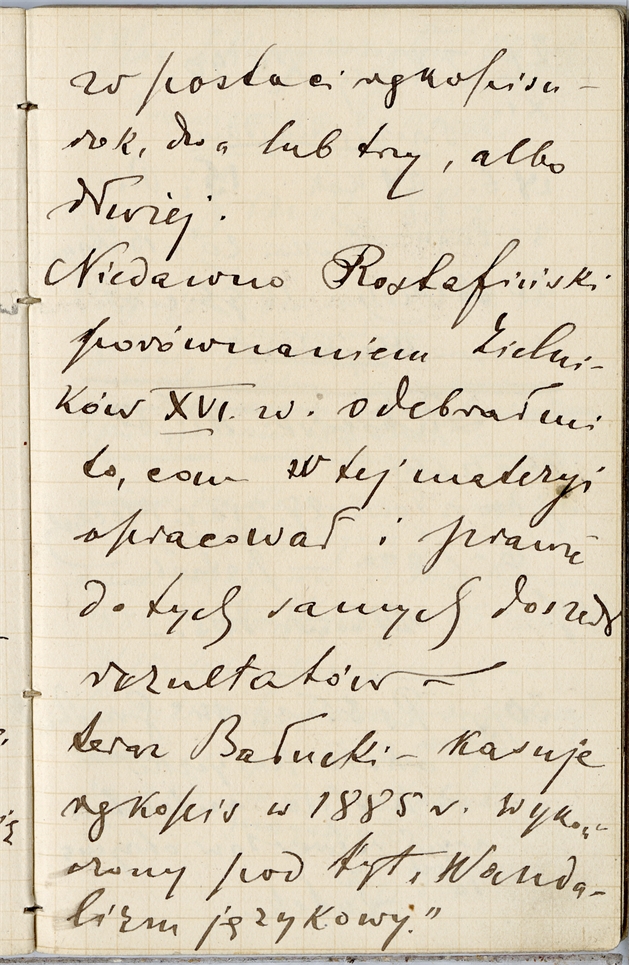 w postaci rękopisu –
rok, dwa lub trzy, albo
dłużej.
Niedawno Rostafiński
porównaniem Zielni-
ków XVI. w. odebrał mi
to, com w tej materyi
opracował i prawie
do tych samych doszedł
rezultatów –
teraz Bałucki – kasuje
rękopis w 1885 r. wykoń-
czony pod tyt. „Wanda-
lizm językowy.”